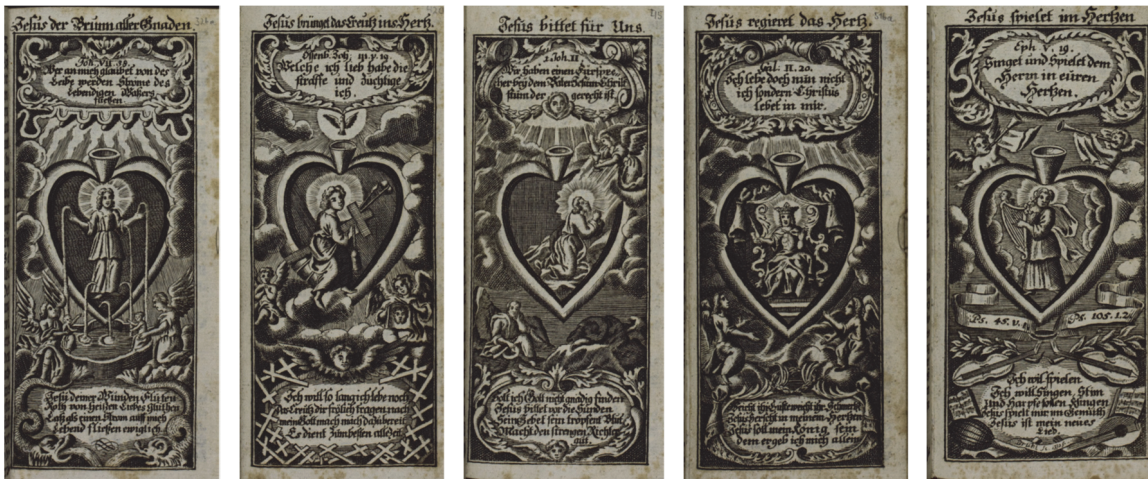 Jesus der Brunn aller Gnaden.
Joh. VII. 38.
Wer an mich glaubet von des
Leibe werden Strome des
lebendigen Wassers
fliessen
Jesu deiner Wunden Fluten
Roth von heissen Liebes Gluthen
Lass als einen Strom auff mich
Lebend fliessen ewiglich.
Jesus bringet das Creutz ins Hertz.
Offenb. Joh. III. v. 19
Welche ich lieb habe die
straffe und zuchtige
ich.
Ich will so lang ich lebe noch
Das Creutz dir frolich tragen nach
mein Gott mach mich dazu bereit
Es dient zum besten allezeit
Jesus bittet für Uns
1. Joh. II
Wir haben einen Fürspre
cher bey dem Vater Jesum Christ
stum der gerecht ist.
Soll ich Gott nicht gnadig finden
Jesus bittet vor die Sunden
Sein Gebet sein tropfend Blut
Macht den strengen Richter
gut.
Jesus regieret das Hertz.
Gal. II. 20.
Ich lebe doch nun nicht
ich sondern Christus
lebet in mir.
Jesus herscht in meinem Hertzen
Jesus soll mein König sein
dem ergeb ich mich allein
Jesus spielet im Hertzen
Eph V. 19.
Singet und Spielet dem
Herrn in euren
Hertzen.
Ps. 45. v. 1
Ps. 105. 1. 2
Ich will spielen
Ich will Singen, Stim
Und Harpfe sollen klingen
Jesus spielt mir im Gemüth
Jesus ist mein neues
Lied.